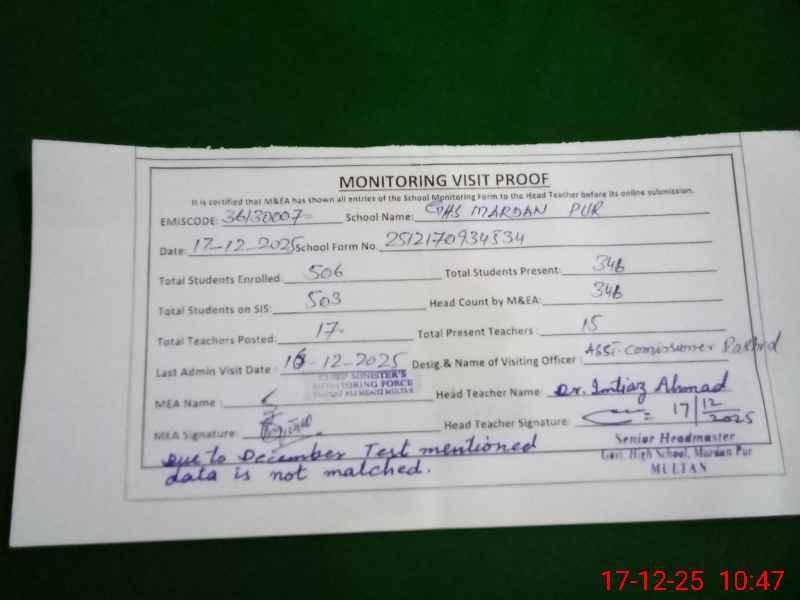 MONITORING VISIT PROOF
It is certified that M&EA has shown all entries of the School Monitoring Form to the Head Teacher before its online submission.
EMISCODE: 36130007 School Name: GHS MARDAN PUR
Date: 17-12-2025 School Form No. 2512170934534
Total Students Enrolled: 506 Total Students Present: 346
Total Students on SIS: 503 Head Count by M&EA: 346
Total Teachers Posted: 17 Total Present Teachers : 15
Last Admin Visit Date : 16-12-2025 Desig.& Name of Visiting Officer : Assi-Comissioner
CHIEF MINISTER'S
MONITORING FORCE
MEA Name : Head Teacher Name: Dr. Imtiaz Ahmad
MEA Signature: Head Teacher Signature: 17/12/2025
Senior Headmaster
Govt. High School, Mardan Pur
MULTAN
Due to December Test mentioned
data is not matched.
17-12-25 10:47